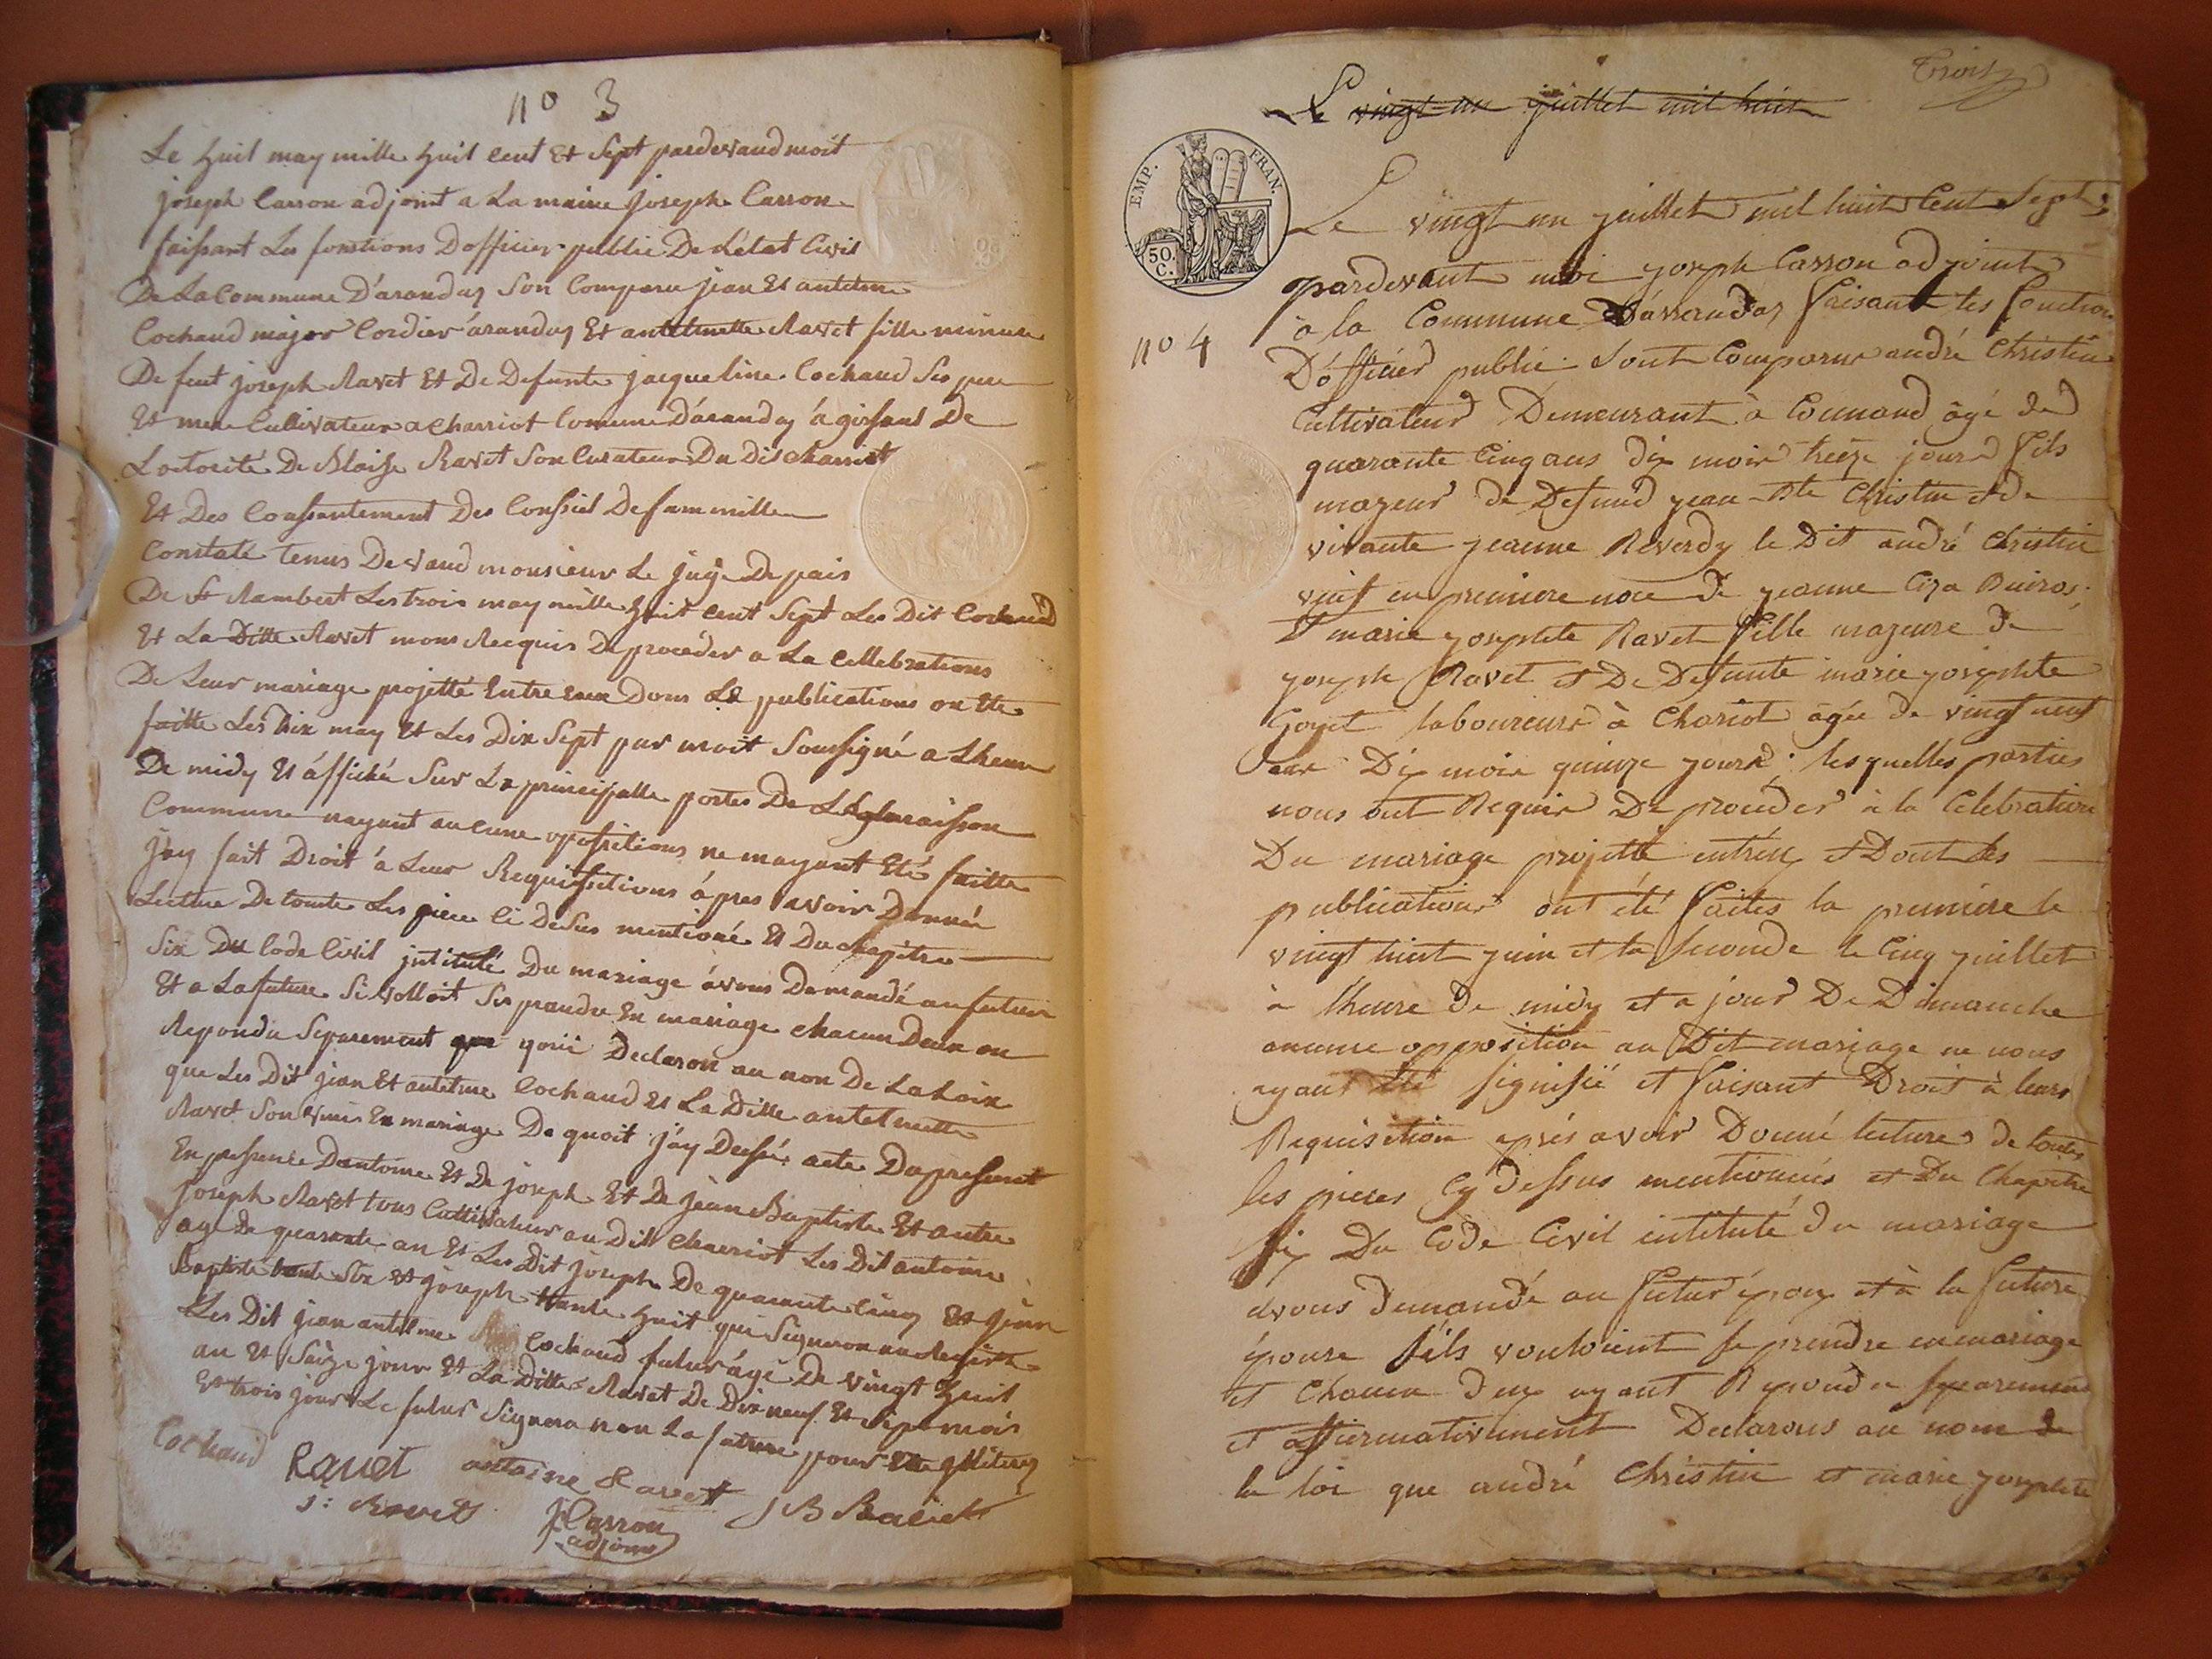 no 3
Le huit may mille huit cent Et Sept pardevand moit
joseph Carron adjoint a La maire joseph Carron
faissant Les fonctions Dofficier public De Létat Civil
De La Commune D'arandas Son Comparu jean Et antelme
Cochaud major Cordier arandas Et antelmette Ravet fille mineure
De feut joseph Ravet Et De Defunte jacqueline Cochaud Ses pere
Et mere Cultivateur a Charriot Comune D'arandas á gissant De
Lotorité De Blaise Ravet Son Curateur Du Dis Charriot
Et Des Consentement Des Conseil De fammille
Constaté tenus Devaud monsieur Le juge De pais
De St Rambert Les trois may mille huit cent Sept Les Dit Cochaud
Et La Ditte Ravet mons Recquis De proceder a La Cellebrations
De Leur mariage projetté Entre eux Dons Le publications on Ete
faitte Les Dix may Et Les Dix Sept par moit Soussigné a Lheure
De midy Et áffiché Sur La principalle portes De La maisson
Commune nayant aucune opositions ne mayant Eté faitte
Jay fait Droit á Leur Requissitions ápres avoir Donnée
Lecture De toute Les piece Ci Desus mentioné Et Du chapitre
Six Du Code Civil jntitulé Du mariage ávons Demandé au futur
Et a La future Si volloit Se prandre En mariage chacun Deux on
Repondu Separement que Declaron au non De La Loix
que Les Dit jean Et antelme Cochaud Et La Ditte antelmette
Ravet Son Unis En mariage De quoit j'áy Dressé acte Du present
En pressence Dantoine Et De joseph Et De Jean Baptiste Et autre
joseph Ravet tous Cultivateur au Dit Charriot Les Dit antoine
age De quarante an Et Les Dit joseph De quarante Cinq Et jean
Baptiste trante Six Et joseph trante huit qui Signeron au Regitre
Les Dit jean antelme Cochaud futur ágé De vingt huit
an Et Seize jour Et La Ditte Ravet De Dix neuf Et Sept mois
Et trois jour Le futur Signera non La future pour
Cochaud Ravet antoine Ravet
J: Ravet J. Carron adjoint J B Ravet
Trois
Le vingt un juillet mil huit
EMP. FRAN.
50. C.
Le vingt un juillet mil huit Cent Sept,
pardevant moi joseph Carron adjoint
no 4
à la Commune D'arrandas faisant les fonction
D'officier public Sont Comparus andré Christin
Cultivateur Demeurant à Connand âgé de
quarante Cinq ans dix mois treize jours fils
mazeur de Defund jean Bte Christin et de
vivante jeanne Reverdy le Dit andré Christin
veuf en premiere noce de jeanne
Et marie josephte Ravet fille mazeure de
joseph Ravet et De Defunte marie josephte
Goyet laboureurs à Chariot âgée de vingt neuf
ans Dix mois quinze jours; lesquelles parties
nous ont Requis De proceder à la Celebration
Du mariage projetté entreux et Dont les
publications ont été faites la premiere le
vingt huit juin et la Seconde le Cinq juillet
à l'heure de midy et a jour De Dimanche
aucune opposition au Dit mariage ne nous
ayant Eté Signifié et faisant Droit à leurs
Requisition après avoir Donné lecture de toutes
les pieces Cy dessus mentionnés et Du Chapitre
Six Du Code Civil intitulé du mariage
avons demandé au futur époux et à la future
épouse s'ils vouloient se prendre en mariage
et Chacun deux ayant Repondu separement
et affirmativement Declarons au nom de
la loi que andré Christin et marie josephte